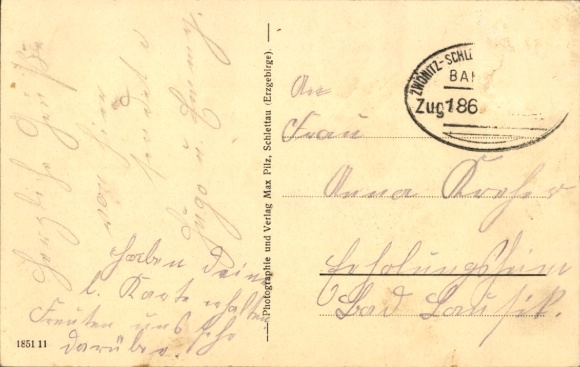 Herzliche Grüße
von
Hugo u.
haben deine
l. Karte erhalten
Freuten uns sehr
darüber.
1851 11
Photographie und Verlag Max Pilz, Schlettau (Erzgebirge).
ZWÖNITZ-SCHLE
BA
Zug 186
An
Frau
Anna Kroher
Erholungsheim
Bad Lausik.